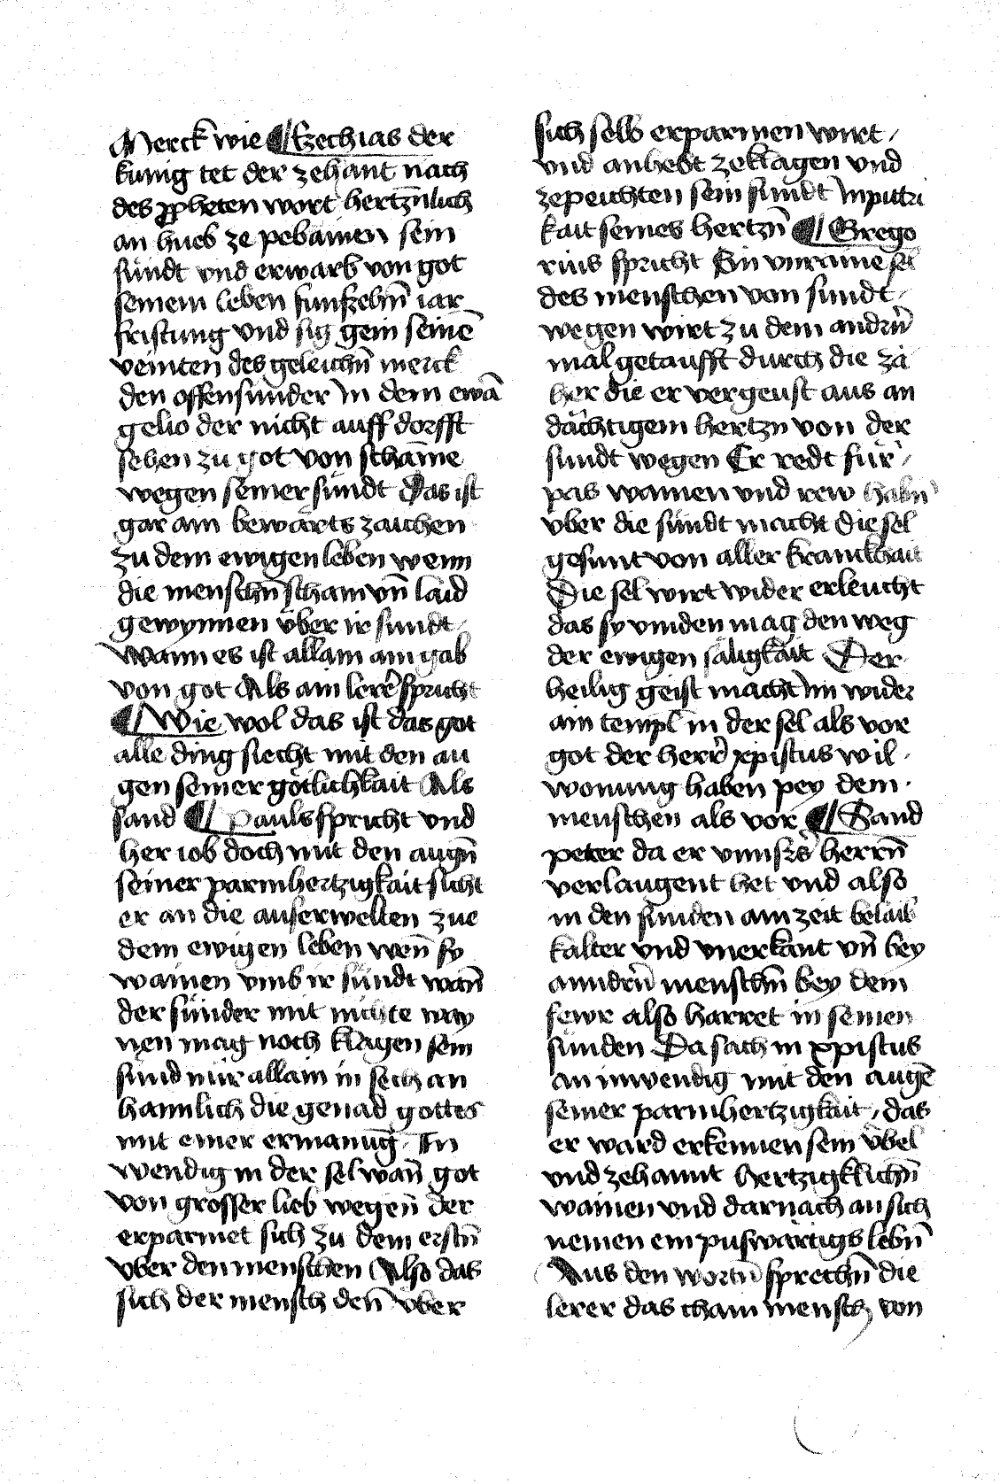 Merck wie ¶ Ezechias der
kunig tet der zehant nach
des ꝓpheten wort hertzn̄lich
an hueb ze pebainen sein
sündt vnd erwarb von got
seinem leben funfzehn̄ iar
fristung vnd sig gein seinē
veinten des geleichn̄ merck
den offensunder in dem ewā
gelio der nicht auff dorfft
sehen zu got von schāme
wegen seiner sündt Das ist
gar ain bewärts zaichen
zu dem ewigen leben wenn
die menschn̄ scham vn̄ laid
gewynnen über ir sundt
wann es ist allain ain gab
von got Als ain lerer spricht
¶ Wie wol das ist das got
alle ding siecht mit den au
gen seiner götlichkait Als
sand ¶ Pauls spricht vnd
her iob doch mit den augn̄
seiner parmhertzigkait sicht
er an die auserwelten zue
dem ewigen leben wen̄ sy
wainen vmb ir sündt wan̄
der sünder mit nichte way
nen mag noch klagen sein
sünd nür allain in sech an
hannlich die genad gottes
mit einer ermanūg In
wendig in der sel wan̄ got
von grosser lieb wegen̄ der
erparmet sich zu dem erstn̄
vber den menschen Also das
sich der mensch den̄ vber
sich selb erparmen wirt
vnd anhebt zeklagen vnd
zepeichten sein sündt in puttri
kait seines hertzn̄ ¶ Grego
rius spricht Ein vnraine sel
des menschen von sundt
wegen wirt zu dem andrn̄
mal getaufft durch die zä
her die er vergeust aus an
dächtigem hertzn von der
sundt wegen Er redt für
pas wainen vnd rew habn
vber die sündt macht die sel
gesunt von aller kranckhait
Die sel wirt wider erleucht
das sy vinden mag den weg
der ewigen säligkait Der
heilig geist macht im wider
ain templ in der sel als vor
got der herr xpistus wil
wonung haben pey dem
menschen als vor ¶ Sand
peter da er vnnsers herrn̄
verlaugent het vnd also
in den sünden ain zeit belaib
kalter vnd vnerkant vn̄ bey
anndrn̄ menschn̄ bey dem
fewr also harret in seinen
sünden Da sach in xpistus
an inwendig mit den augē
seiner parmhertzigkait das
er ward erkennen sein übel
vnd zehannt hertzigklichn̄
wainen vnd darnach an sich
nemen ein puswärtigs lebn̄
Aus den wortn̄ sprechn̄ die
lerer das chain mensch von